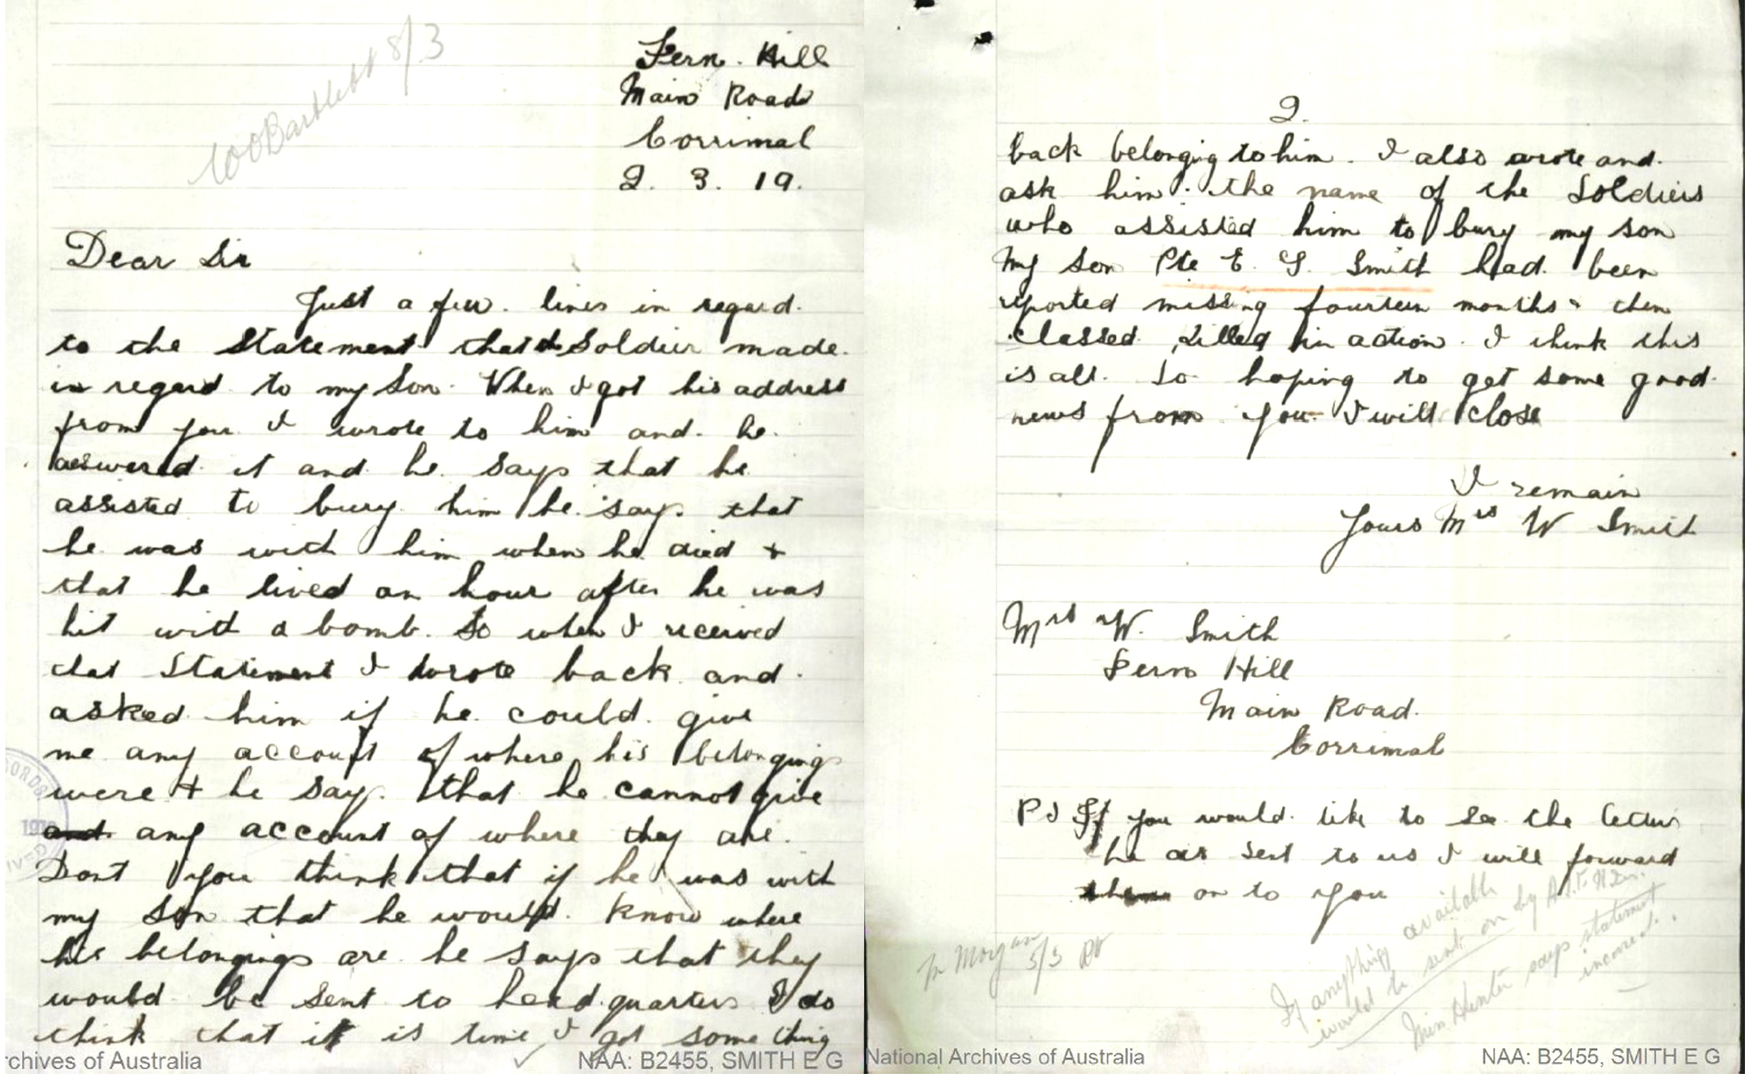 8/3
Fern. Hill
Main Road
Corrimal
2. 3. 19.
Dear Sir
Just a few. lines in regard.
to the Statement that Soldier made.
in regard to my Son. When I got his address
from you I wrote to him and. he.
answered. it and he. says that he
assisted to bury him he. says. that
he was with him when he died +
that he lived an hour after he was
hit with a bomb. So when I received
that Statement I wrote back and.
asked him if he could. give
me any account of where his belongings
were + he say. that he cannot give
any account of where they are.
Dont you think that if he was with
my Son that he would. know where
his belongings are he says that they
would be sent to head.quarters I do
think that it is time I got some thing
chives of Australia
NAA: B2455, SMITH E G
2.
back belonging to him. I also wrote and.
ask him. the name of the Soldiers
who assisted him to bury my son
My Son Pte E. G. Smith had. been
reported missing fourteen months. then
classed killed in action. I think this
is all. So hoping to get some good.
news from you. I will close
I remain
Yours Mrs W Smith
Mrs W. Smith
Fern Hill
Main Road.
Corrimal
PS If you would. like to see the letters
he as sent to us I will forward
them on to you
Morgan
5/3
If anything available
would be sent on by
Miss Hunter says statement
incorrect.
National Archives of Australia
NAA: B2455, SMITH E G